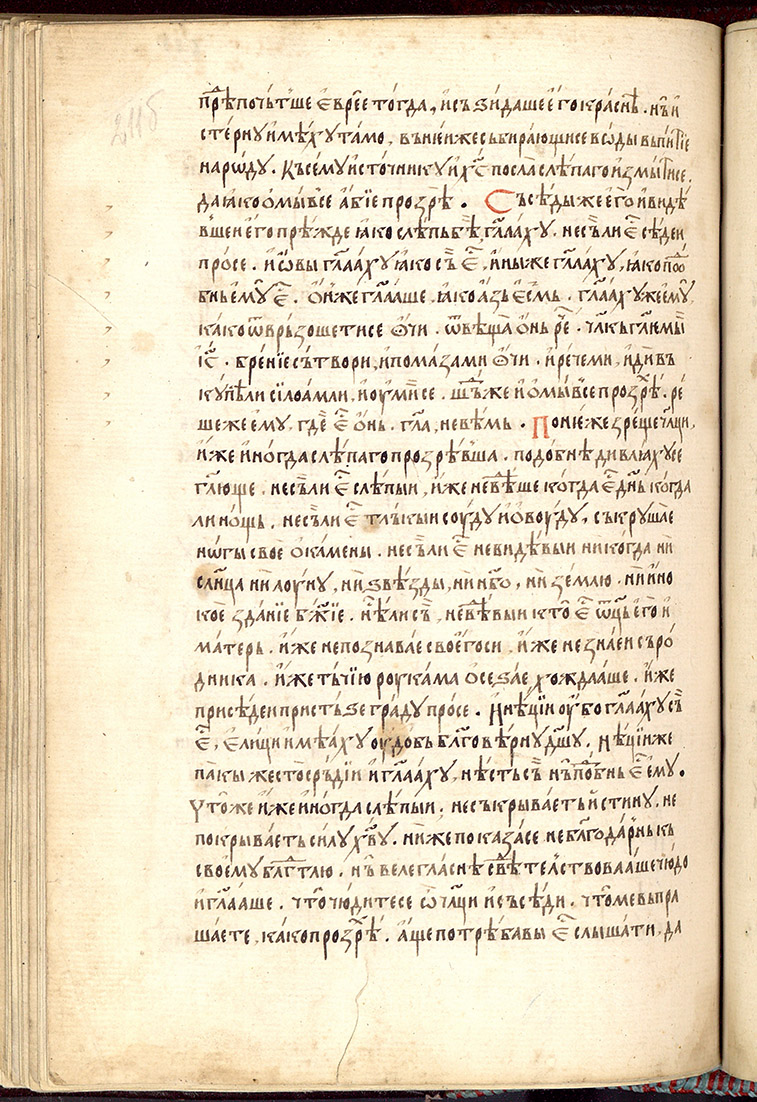 прѣпочьтше еврее тогда, и съзидаше его краснѣ. нъ и
стерну имѣху тамо, въ нѥи же събирающисе вѡды въ питїе
нарѡду. Къ сему источнику и х҃с посла слѣпаго измытисе.
да ꙗко омывсе абїе прозрѣ. Съсѣды же его и видѣ
вшеи его прѣжде ꙗко слѣпь бѣ, гл҃аху. нѣсъ ли ѥ҃ сѣдеи
просе. и ѡвы гл҃аху ꙗко съ ѥ҃, и ны же гл҃аху, ꙗко подо
бнь ему ѥ҃. Ои же гл҃аше, ꙗко азь есмь. гл҃аху же ему,
како ѿврьзошетисе ѻчи. ѿвѣща онь рече. чл҃кь гл҃ѥмыи
і҃с. брениѥ сътвори, и помаза ми ѻчи. и рече ми, иди въ
купѣли силоамли, и оумиисе. шьд же и омывсе прозрѣ. ре
ше же ему, где ѥ҃ онь. гл҃а, не вѣмь. Понѥже зрѣще чл҃ци,
иже иногда слѣпаго прозрѣвша. подобнѣ дивлꙗхусе
гл҃юще. нѣсъ ли ѥ҃ слѣпыи, иже не вѣше когда ѥ҃ днь когда
ли нощь. нѣсъ ли ѥ҃ тлькыи соуду и овоуду, съкрушае
нѡгы своѥ о камены. нѣсъ ли ѥ҃ не видѣвыи никогда ни
слн҃ца ни лоуну, ни звѣзды, ни нб҃о, ни землю. ни ино
коѥ зданїе бж҃їе. нѣ ли съ, не вѣвыи кто ѥ҃ ѿць его и
матерь. иже не познаваѥ своеѓоси. иже не знаѥи съро
дника. иже тьчїю роукама осезаѥ хождааше. иже
присѣдеи при стьзе граду просе. Нѣцїи оубо гл҃аху съ
ѥ҃, елици имѣаху оудобь бл҃говѣрну дш҃у. Нѣцїи же
пакы жестосрьдїи и гл҃аху, нѣсть съ нъ подобнь ѥ҃ ему.
Что же иже иногда слѣпыи. не съкрываеть истину. не
покрываеть силу хв҃у. ниже показасе неблагодарнь къ
своему благодѣтлю. нъ велегласнѣ свѣтелствоваашечюдо
и гл҃ааше. что чюдитесе ѡ чл҃ци и съсѣди. что ме въпра
шаете, како прозрѣ. Аще потрѣба вы ѥ҃ слышати, да